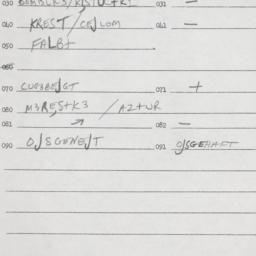 030 031 —
040 KREST/CEJLOM 041 —
050 FALB+
060
070 071 +
080 M3RES+K3 / AZ+UR
081 → 082 —
090 OJSGENEJT 091 OJSGEHAFT